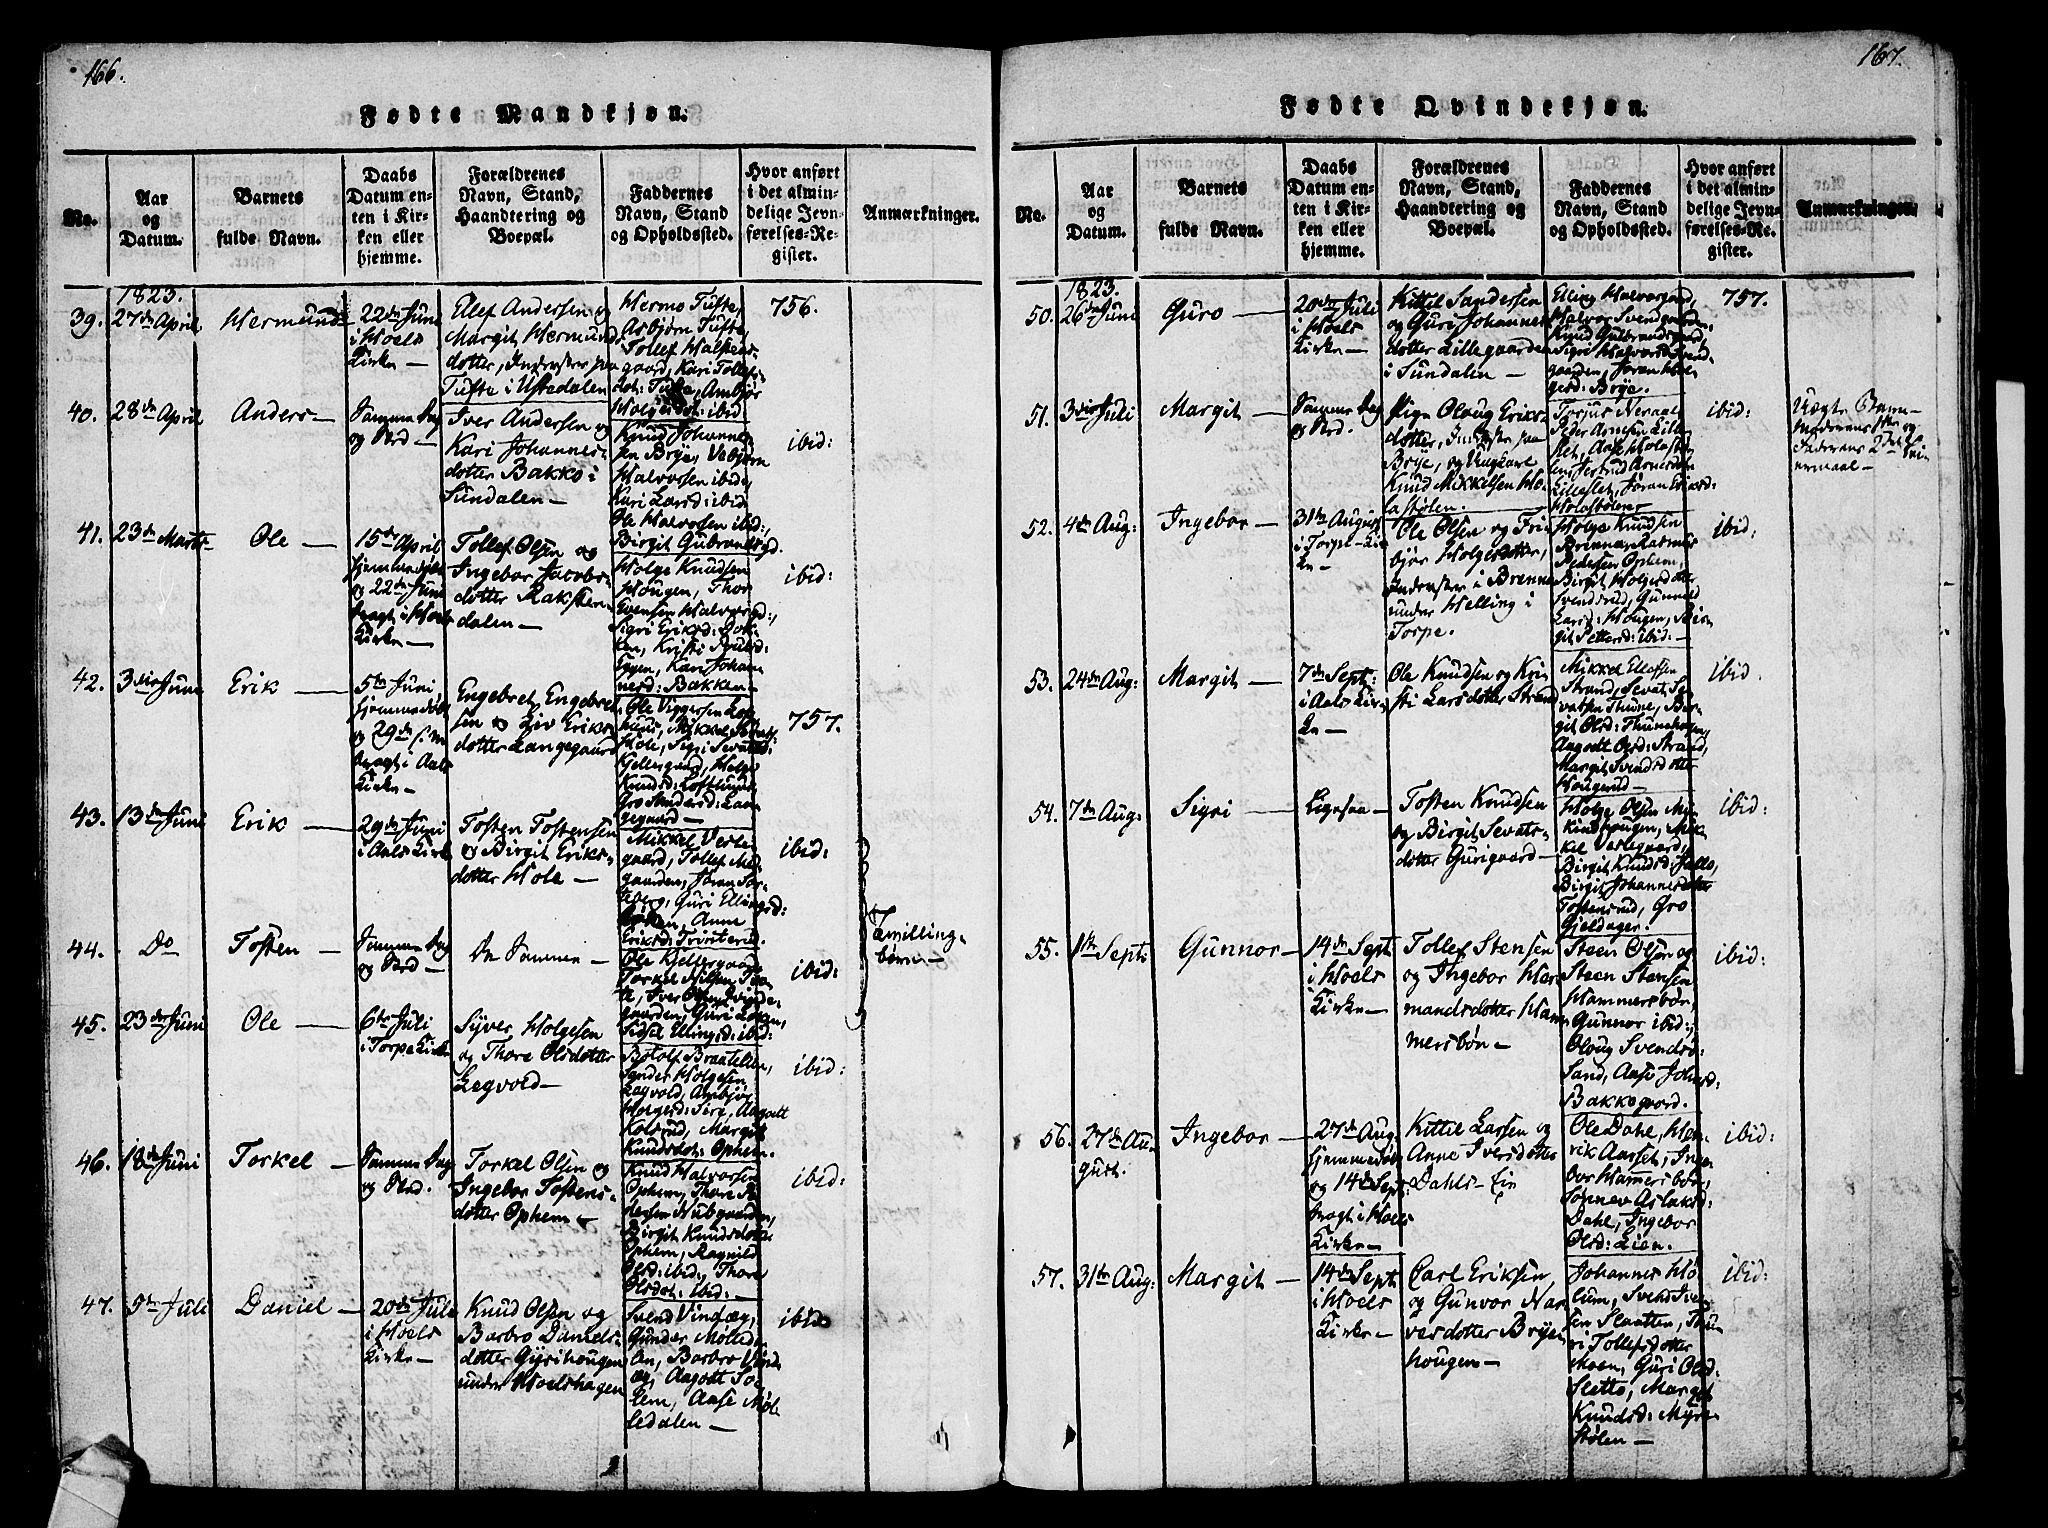 166.
Fødte Mandkjøn.
No.
Aar
og
Datum.
Barnets
fulde Navn.
Daabs
Datum en-
ten i Kir-
ken eller
hjemme.
Forældrenes
Navn, Stand,
Haandtering og
Boepæl.
Faddernes
Navn, Stand
og Opholdssted.
Hvor anført
i det almin-
delige Jevn-
førelses-Re-
gister.
Anmærkninger.
1823.
39.
27de April
Hermund
22de Juni
i Hoels
Kirke
Elef Andersen og
Margit Hermunds
dotter, Inderster paa
Tufte i Ustedalen
Hermo Tufte,
Asbjørn Tufte,
Tollef Halsteens-
gaard, Kari Tollefs-
dot: Tufte, Ambjør
Holgersdt: ibid
756.
40.
28de April
Anders
Samme Dag
og Sted
Iver Andersen og
Kari Johannes-
dotter Bakko i
Sundalen
Knud Johanne-
sen Brye, Vebjørn
Halvorsen ibid,
Kari Larsd: ibid
Ole Halvorsen ibid:,
Birgit Gubrandsgd.
ibid:
41.
23de Marts
Ole
15de April
hjemmedøbt
og 22de Juni
bragt i Hoels
Kirke
Tollef Olsen og
Ingebor Jacobs-
dotter Raksten-
dalen
Holge Knudsen
Hougen, Thor
Svensen Halvorsgd:
Sigri Eriksd: Bak-
ken, Kristi Paulsd:
Eggen, Kari Johan-
nesd: Bakken
ibid:
42.
3die Juni
Erik
5te Juni,
hjemmedøbt
og 29de s. m.
bragt i Aals
Kirke
Engebret Engebret-
sen og Liv Eriks-
dotter Langegaard
Ole Viggersen Loft-
huus, Mikkel
Hole, Sigri Sevatsd:
Kjellergaard, Helge
Knudsd: Lofthuus
Gro Andersd: Lan-
gegaard
757.
43.
13de Juni
Erik
29de Juni
i Aals Kirke
Tosten Tostensen
og Birgit Eriks-
dotter Hole
Mikkel Vesle-
gaard, Tollef Med-
gaarden, Jøran Tor-
Guri Ellingsd:
Anne
Eriksd:
ibid:
44.
Do
Tosten
Samme Dag
og Sted
De Samme
Ole Kjellergaard
Torkel Nilsen
Iver Olsen
gaarden, Guri
Sidsel Ellingsd: ibid:
ibid:
Tvilling-
børn
45.
23de Juni
Ole
6te Juli
i Torpe Kirke
Syver Holgesen
og Thore Olsdotter
Legvold
Botolf Braatelien,
Sander Holgesen
Legvold, Ambjør
Holgersd: Sire, Aagodt
Kolsrud, Margit
Knudsdot: Ophem.
ibid:
46.
18de Juni
Torkel
Samme Dag
og Sted.
Torkel Olsen og
Ingebor Tostens-
dotter Ophem
Knud Halvorsen
Ophem, Thore
Nubgaarden,
Birgit Knudsdotter
Ophem, Ragnild
Olsd: ibid:, Thore
Olsdot: ibid:
ibid:
47.
5te Juli
Daniel
20de Juli
i Hoels
Kirke
Knud Olsen og
Barbro Daniels-
dotter Gyrihougen
under Hoelshagen
Svend Vindeg,
Gunder Mølleda-
len, Barbro Vind-
eg, Aagodt So-
lem, Aase Møl-
ledalen
ibid
167.
Fødte Qvindekjøn.
No.
Aar
og
Datum.
Barnets
fulde Navn.
Daabs
Datum en-
ten i Kir-
ken eller
hjemme.
Forældrenes
Navn, Stand,
Haandtering og
Boepæl.
Faddernes
Navn, Stand
og Opholdssted.
Hvor anført
i det almin-
delige Jevn-
førelses-Re-
gister.
Anmærkninger.
1823.
50.
26de Juni
Guro
20de Juli
i Hoels
Kirke
Kittil Sandersen
og Guri Johannes-
dotter Lillegaarden
i Sundalen
Elling Halvorsgaard,
Halvor Svendgaarden,
Knud Guldbrandsgaard,
Sigri Halvorsd: Svend-
gaarden, Jøran Hol-
gersd: Brye.
757.
51.
3die Juli
Margit
Samme Dag
og Sted.
Pige Oloug Eriks-
dotter, Inderste paa
Brye, og Ungkarl
Knud Mikkelsen Ho-
lastølen.
Torjus Neraal
Peder Arnesen Lille-
slet, Aase Holastøl-
en, Jertrud Arnesdotter
Lilleslet, Jøran Eriksd:
Holastølen
ibid:
Uægte Barn
Moderens 1ste og
Faderens 2det Lei-
ermaal
52.
4de Aug:
Ingebor
31te August
i Torpe Kir-
ke
Ole Olsen og Fri-
bjør Holgesdotter,
Inderster i Brenne
under Helling i
Torpe.
Holge Knudsen
Brenne, Rasmus
Pedersen Ophem,
Birgit Holgersdotter
Svendsrud, Gunnild
Larsd: Hougen, Bir-
git Pettersd: ibid:
ibid:
53.
24de Aug:
Margit
7de Sept:
i Aals Kir-
ke
Ole Knudsen og Kri-
sti Larsdotter Strand
Mikkel Ellefsen
Strand, Sevat Se-
vatsen Thune, Bir-
git Olsd: Thunehougen,
Aagodt Olsd: Strand,
Margit Svendsdotter
Hougerud
ibid.
54.
7de Aug:
Sigri
Ligesaa
Tosten Knudsen
og Birgit Sevats-
dotter Gurigaard
Holge Olsen My-
kindhougen, Mik-
kel Veslegaard,
Birgit Knudsd:
Birgit Johannesdotter
Tostensrud, Gro
Gjeldager.
ibid:
55.
1ste Sept:
Gunnor
14de Sept.
i Hoels
Kirke
Tollef Stensen
og Ingebor Her-
mandsdotter Ham-
mersbøn
Steen Olsen og
Steen Stensen
Hammersbøn,
Gunnor ibid:,
Oloug Svendsd:
Sand, Aase Johansd:
Bakkegaard.
ibid:
56.
27de Au-
gust.
Ingebor
27de Aug:
hjemmedøbt
og 14de Sept:
bragt i Hoels
Kirke
Kittil Larsen og
Anne Iversdotter
Dahls-Eie
Ole Dahl, Hen-
rik Aarset, Inge-
bor Hammersbøn,
Sønnev Aslaksd:
Dahl, Ingebor
Olsd: Lien.
ibid:
57.
31te Aug:
Margit
14de Sept:
i Hoels
Kirke
Carl Eriksen
og Gunvor Nar-
vesdotter Brye-
hougen
Johannes Hø-
lum, Svend Sven-
sen Slaatten, Thu-
ri Tollefsdotter
Moen, Guri Olsd:
Sletto, Margit
Knudsd: Myre-
stølen
ibid: